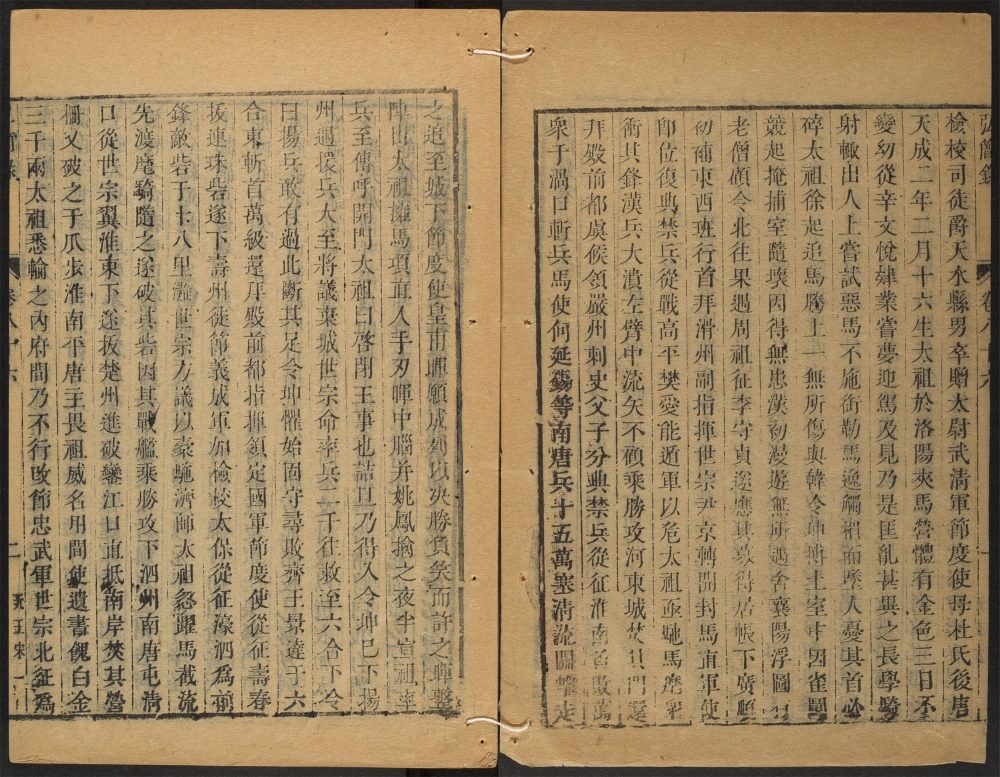 弘簡錄
卷八十六
一
檢校司徒爵天水縣男卒贈太尉武清軍節度使母杜氏後唐
天成二年二月十六生太祖於洛陽夾馬營體有金色三日不
變幼從辛文悅肄業嘗夢迎駕及見乃是匡胤甚異之長學騎
射輒出人上嘗試惡馬不施銜勒馬逸觸楣而墜人憂其首必
碎太祖徐起追馬騰上一無所傷與韓令坤博土室中因雀鬬
競起掩捕室隨壞因得無患漢初漫遊無所遇舍襄陽浮圖
老僧顧令北往果遇周祖征李守貞遂應其募得居帳下廣順
初補東西班行首拜滑州副指揮世宗尹京轉開封馬直軍使
即位復典禁兵從戰高平樊愛能遁軍以危太祖亟馳馬
衝其鋒漢兵大潰左臂中流矢不顧乘勝攻河東城焚其門還
拜殿前都虞候領嚴州刺史父子分典禁兵從征淮南首敗萬
衆于渦口斬兵馬使何延錫等南唐兵十五萬塞清流關擊走
之追至城下節度使皇甫暉願成列以決勝負矣而許之暉整
陣出太祖擁馬項直入手刃暉中腦并姚鳳擒之夜半宣祖率
兵至傳呼開門太祖曰啓閉王事也詰旦乃得入令坤已下揚
州遇援兵大至將議棄城世宗命率兵二千往救至六合下令
曰揚兵敢有過此斷其足令坤懼始固守尋敗齊王景達于六
合東斬首萬級還拜殿前都指揮領定國軍節度使從征壽春
拔連珠砦遂下壽州徙節義成軍加檢校太保從征濠泗爲前
鋒敵砦于十八里灘世宗方議以橐駞濟師太祖忽躍馬截流
先渡麾騎隨之遂破其砦因其戰艦乘勝攻下泗州南唐屯清
口從世宗翼淮東下遂拔楚州進破鑾江口直抵南岸焚其營
柵又破之于瓜步淮南平唐主畏祖威名用間使遺書餽白金
三千兩太祖悉輸之內府間乃不行改節忠武軍世宗北征爲
卷八十六
二